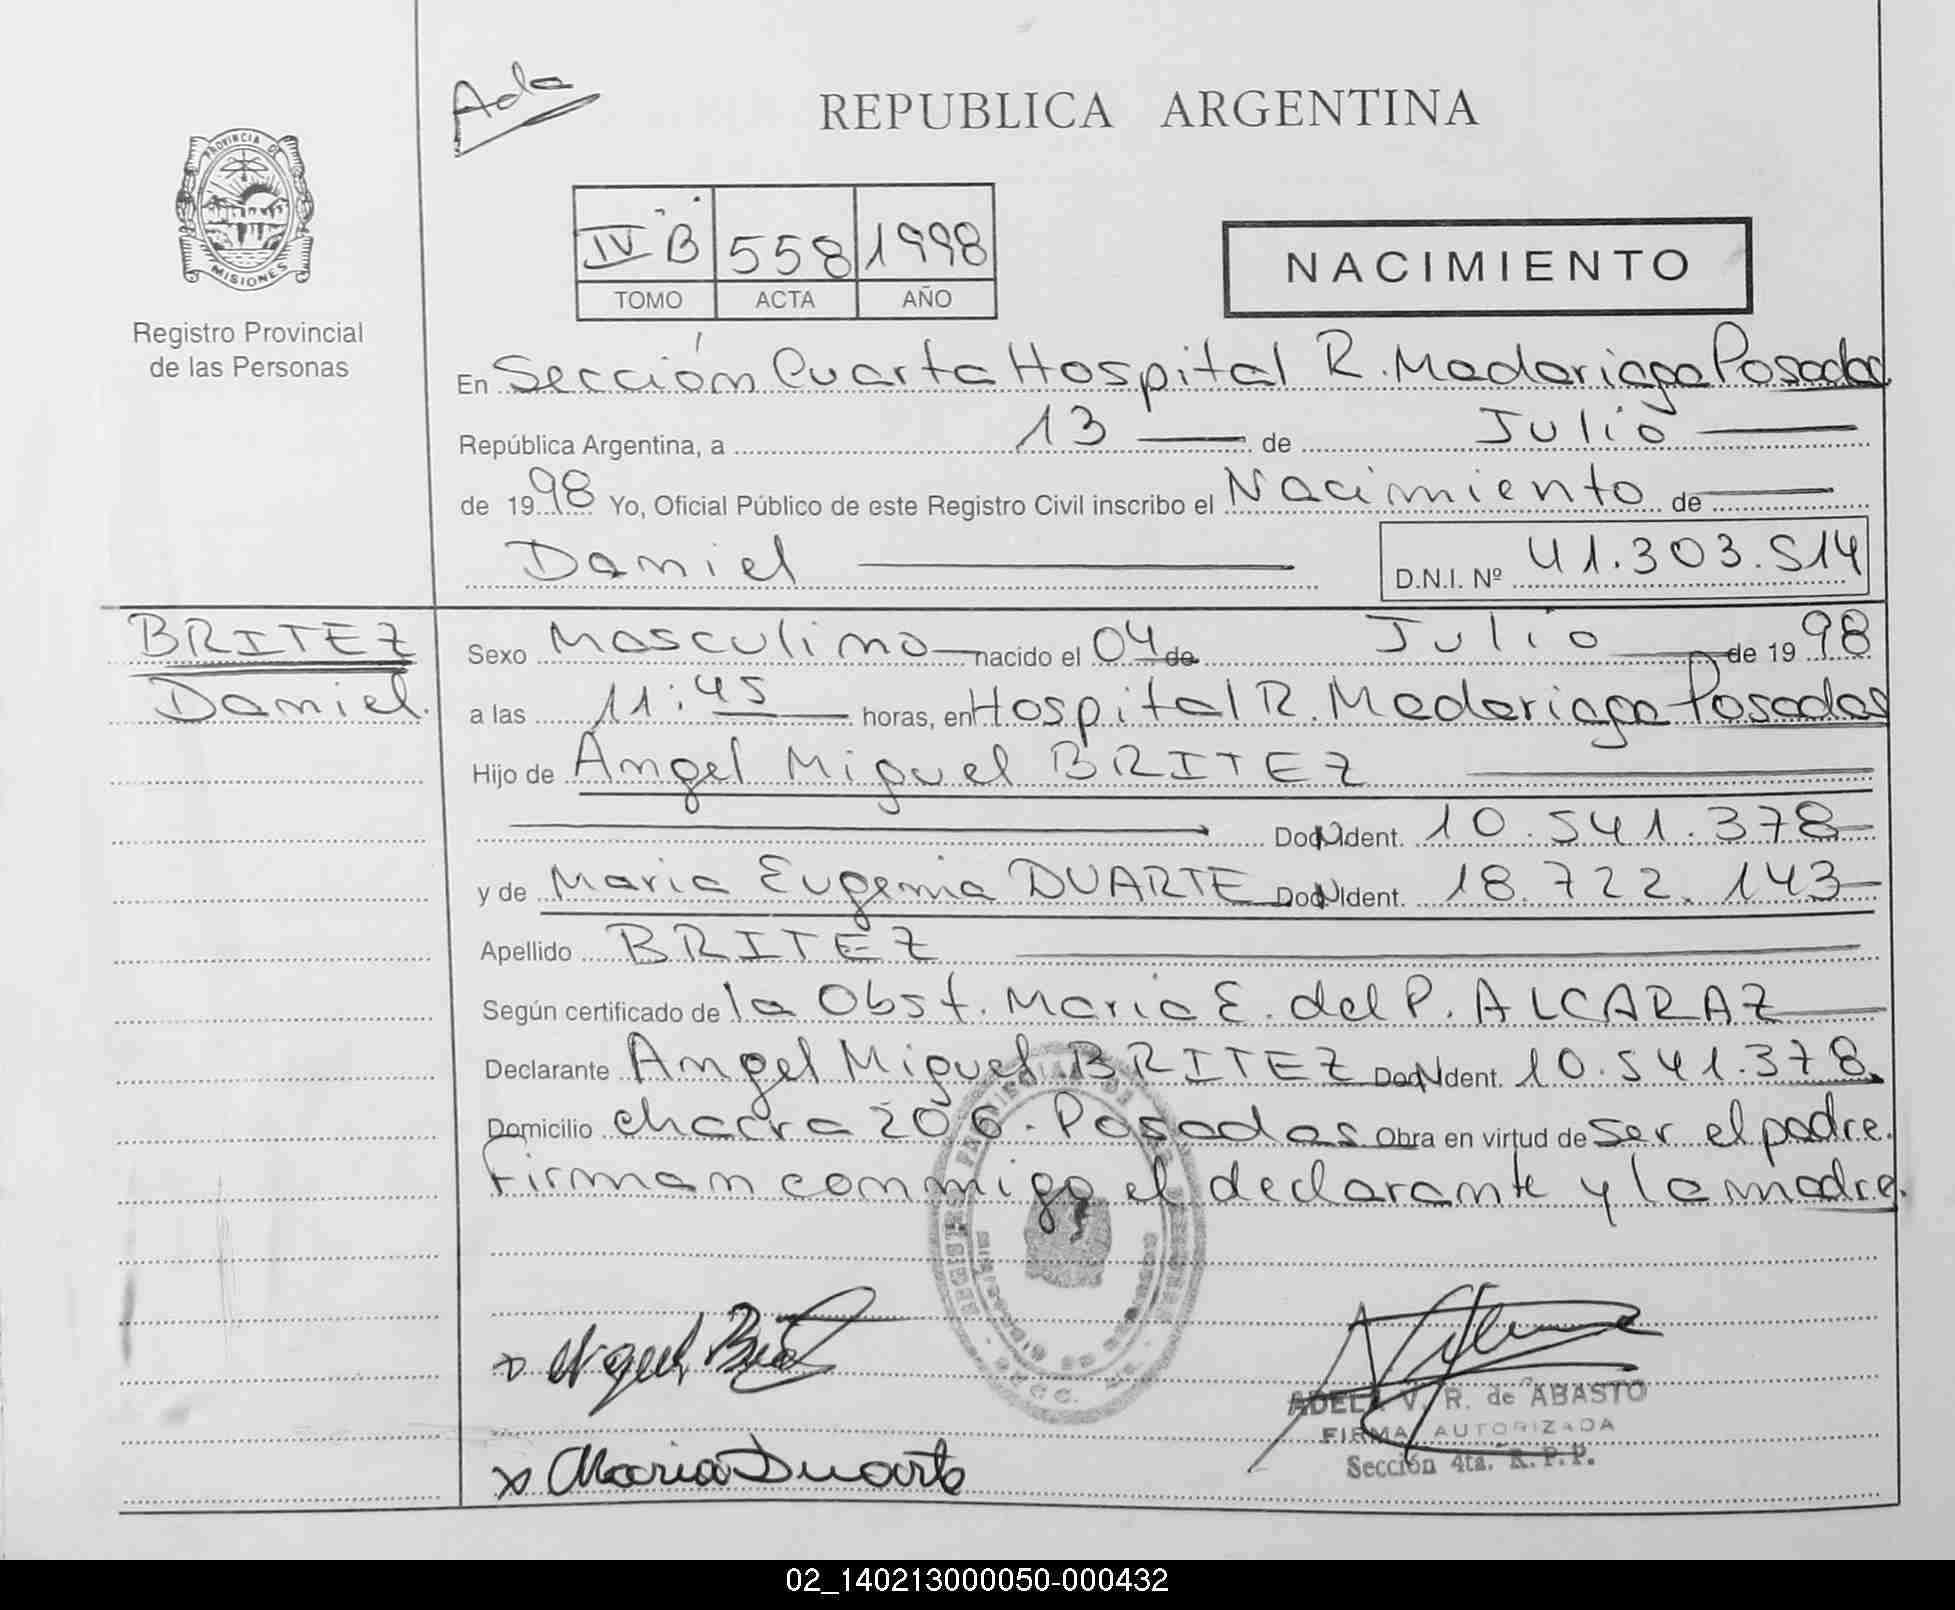 Ada
REPUBLICA ARGENTINA
PROVINCIA DE
MISIONES
Registro Provincial
de las Personas
IV B 558 1998
TOMO ACTA AÑO
NACIMIENTO
En Sección Cuarta Hospital R. Madariaga Posadas
República Argentina, a 13 de Julio
de 1998 Yo, Oficial Público de este Registro Civil inscribo el Nacimiento de
Daniel D.N.I. Nº 41.303.514
BRITEZ
Daniel.
Sexo Masculino nacido el 04 de Julio de 1998
a las 11:45 horas, en Hospital R. Madariaga Posadas
Hijo de Angel Miguel BRITEZ
Doc. Ident. 10.541.378
y de Maria Eugenia DUARTE Doc. Ident. 18.722.143
Apellido BRITEZ
Según certificado de la Obst. Maria E. del P. ALCARAZ
Declarante Angel Miguel BRITEZ Doc. Ident. 10.541.378
Domicilio chacra 206. Posadas Obra en virtud de ser el padre.
Firman conmigo el declarante y la madre.
x
ADELA V. R. de ABASTO
FIRMA AUTORIZADA
Sección 4ta. R.P.P.
x Maria Duarte
02_140213000050-000432